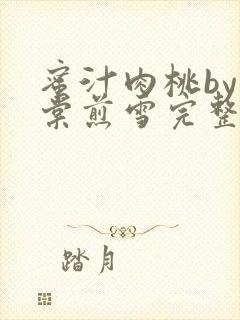 蜜汁肉桃by
棠煎雪完整
踏月